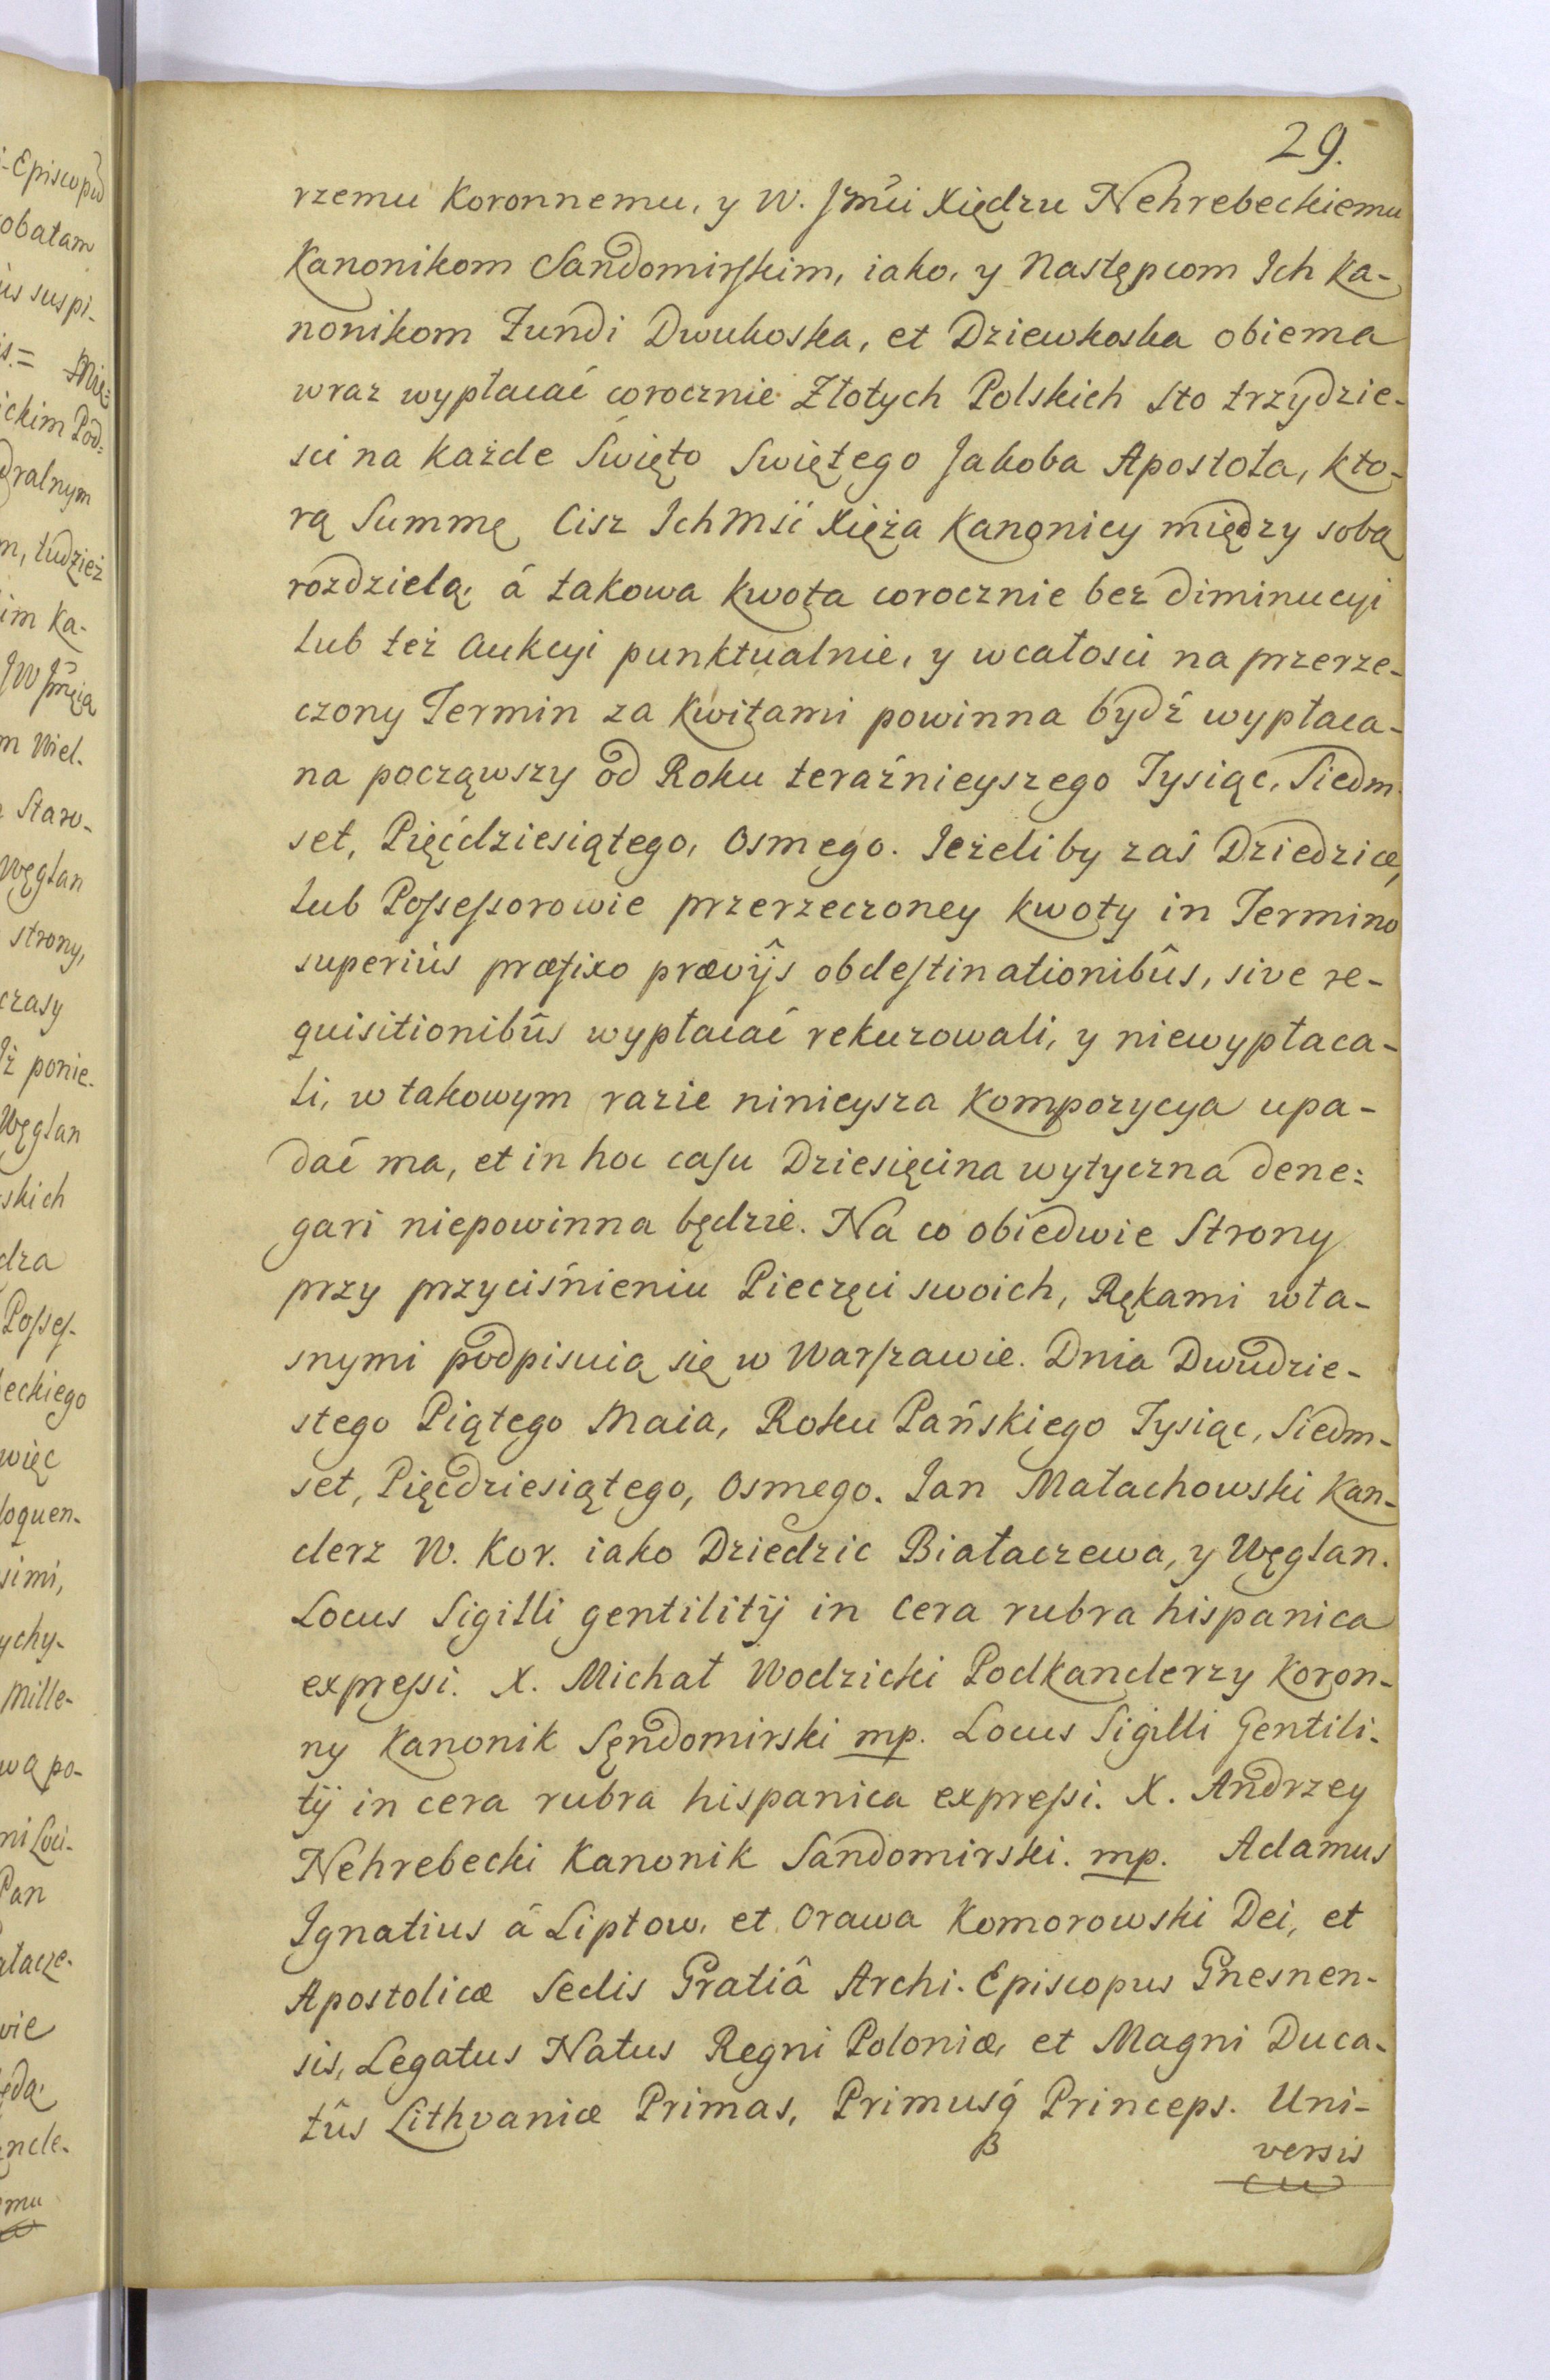 29.
rzemu Koronnemu, y W. Jmći Xiędzu Nehrebeckiemu
Kanonikom Sandomirskim, iako, y Następcom Ich Ka-
nonikom Fundi Dwukoska, et Dziewkoska obiema
wraz wypłacać corocznie Złotych Polskich Sto trzydzie-
sci na każde Swięto Swiętego Jakoba Apostoła, kto-
rą Summę Cisz IchMsći Xięża Kanonicy między sobą
rozdzielą, á takowa kwota corocznie bez diminucyi
lub też Aukcyi punktualnie, y wcałosci na przerze-
czony Termin za kwitami powinna bydź wypłaca-
na począwszy od Roku teraźnieyszego Tysiąc, Siedm-
set, Pięćdziesiątego, Osmego. Jeżeliby zaś Dziedzice,
lub Possessorowie przerzeczoney kwoty in Termino
superiùs præfixo prævijs obdestinationibûs, sive re-
quisitionibûs wypłacać rekuzowali, y niewypłaca-
li, w takowym razie ninieysza Kompozycya upa-
dać ma, et in hoc casu Dziesięcina wytyczna dene-
gari niepowinna będzie. Na co obiedwie Strony
przy przyciśnieniu Pieczęci swoich, Rękami wła-
snymi podpisuią się w Warszawie. Dnia Dwudzie-
stego Piątego Maia, Roku Pańskiego Tysiąc, Siedm-
set, Pięćdziesiątego, Osmego. Jan Małachowski Kan-
clerz W. Kor. iako Dziedzic Białaczewa, y Węglan.
Locus Sigilli gentilitij in Cera rubra hispanica
expressi. X. Michał Wodzicki Podkanclerzy Koron-
ny Kanonik Sęndomirski mp. Locus Sigilli Gentili-
tij in cera rubra hispanica expressi. X. Andrzey
Nehrebecki Kanonik Sandomirski. mp. Adamus
Ignatius á Liptow, et Orawa Komorowski Dei, et
Apostolicæ Sedis Gratiâ Archi-Episcopus Gnesnen-
sis, Legatus Natus Regni Poloniæ, et Magni Duca-
tûs Lithvaniæ Primas, Primusq́ Princeps. Uni-
B
versis